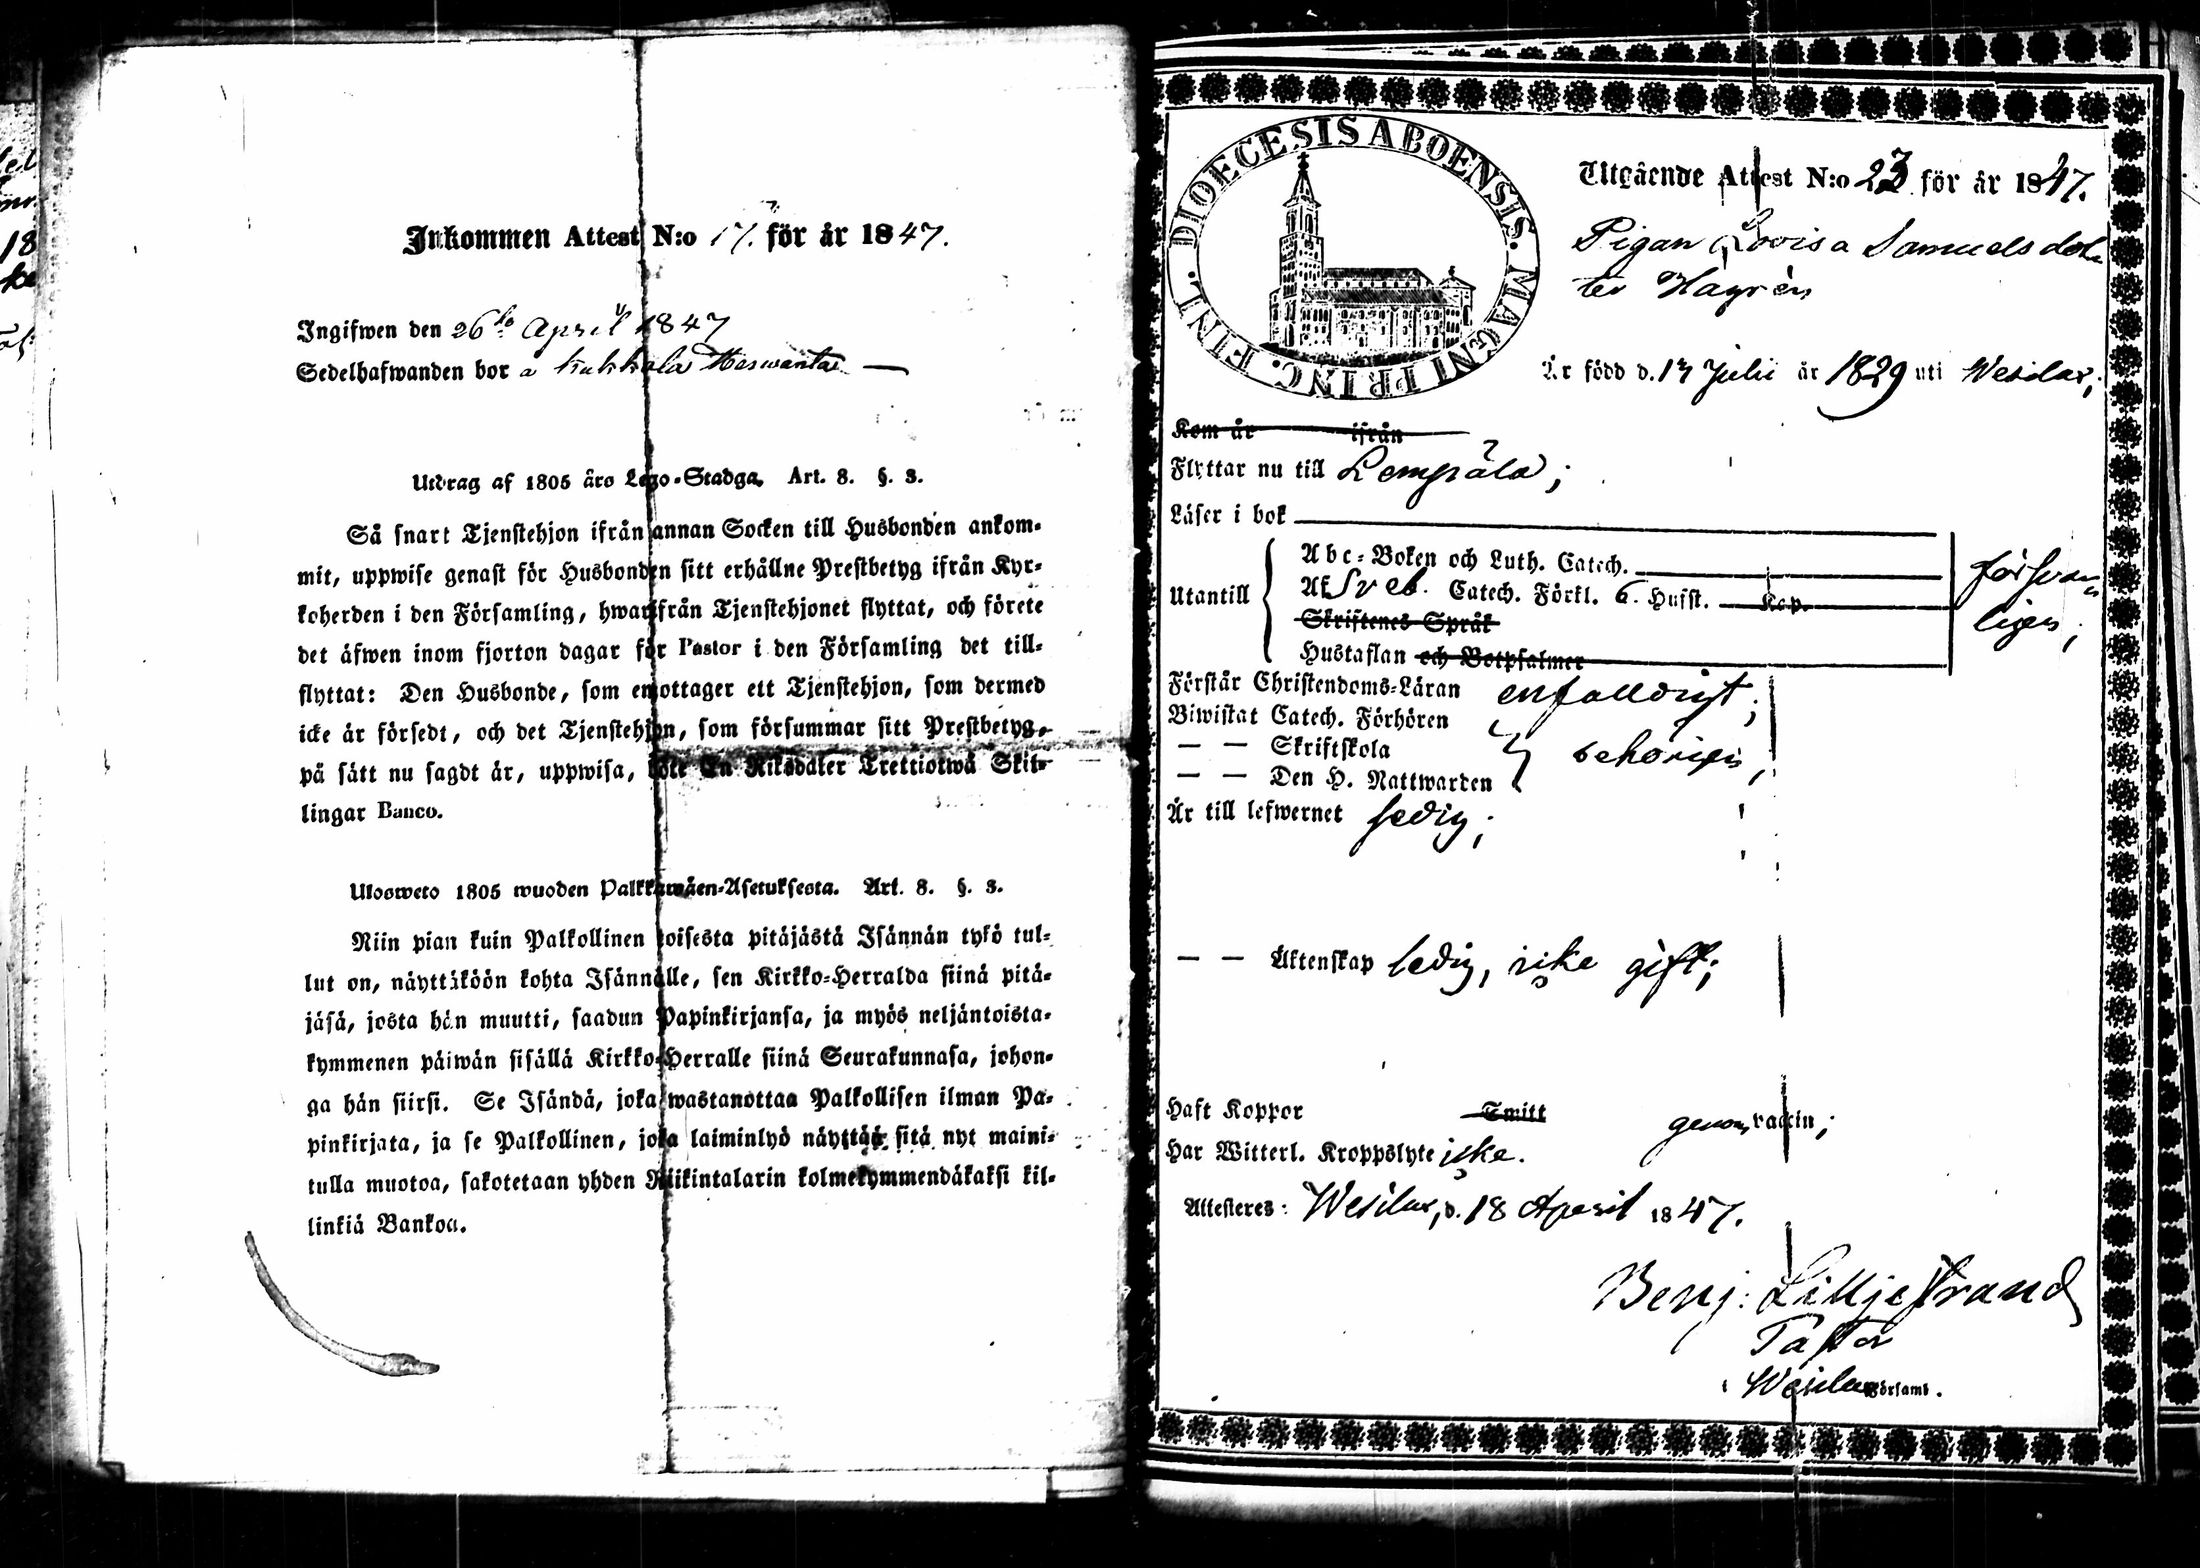 Inkommen Attest N:o 17. för år 1847.
Ingifwen den 26to April 1847
Sedelhafwanden bor å Kukkola Herwanta
Utdrag af 1805 års Lego-Stadga. Art. 8. §. 3.
Så snart Tjenstehjon ifrån annan Socken till Husbonden ankom-
mit, uppwise genast för Husbonden sitt erhållne Prestbetyg ifrån Kyr-
koherden i den Församling, hwarifrån Tjenstehjonet flyttat, och förete
det äfwen inom fjorton dagar för Pastor i den Församling det till-
flyttat: Den Husbonde, som emottager ett Tjenstehjon, som dermed
icke är försedt, och det Tjenstehjon, som försummar sitt Prestbetyg,
på sätt nu sagdt är, uppwisa, böte En Riksdaler Trettiotwå Skil-
lingar Banco.
Ulosweto 1805 wuoden Palkkawäen-Asetuksesta. Art. 8. §. 3.
Niin pian kuin Palkollinen toisesta pitäjästä Isännän tykö tul-
lut on, näyttäköön kohta Isännälle, sen Kirkko-Herralda siinä pitä-
jäsä, josta hän muutti, saadun Papinkirjansa, ja myös neljäntoista-
kymmenen päiwän sisällä Kirkko-Herralle siinä Seurakunnasa, johon-
ga hän siirsi. Se Isändä, joka wastanottaa Palkollisen ilman Pa-
pinkirjata, ja se Palkollinen, joka laiminlyö näyttää sitä nyt maini-
tulla muotoa, sakotetaan yhden Riikintalarin kolmekymmendäkaksi kil-
linkiä Bankoa.
DIOECESIS ABOENSIS. MAGNI PRINC. FINL.
Utgående Attest N:o 23 för år 1847.
Pigan Lovisa Samuelsdot
ter Hagrén
Är född d. 17 Julii år 1829 uti Wesilax;
Kom år ifrån
Flyttar nu till Lempälä;
Läser i bok
Abc-Boken och Luth. Catech.
Utantill Af Sveb. Catech. Förkl. 6. Hufst. Kap. försvar
Skriftenes Språk ligen;
Hustaflan och Botpsalmer
Förstår Christendoms-Läran enfalldigt;
Biwistat Catech. Förhören
— — Skriftskola behörigen,
— — Den H. Nattwarden
Är till lefwernet ledig;
— — Äktenskap ledig, icke gift;
Haft Koppor Smitt genom vaccin;
Har Witterl. Kroppslyte icke.
Attesteres: Wesilax, d. 18 April 1847.
Benj: Lilljestrand
Pastor
i Wesilax Församl.